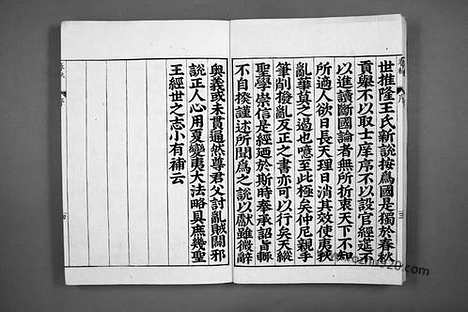 世推隆王氏新說按爲國是獨於春秋
貢舉不以取士庠序不以設官經筵不
以進讀斷國論者無所折衷天下不知
所適人欲日長天理日消其效使夷狄
亂華莫之遏也噫至此極矣仲尼親手
筆削撥亂反正之書亦可以行矣天縱
聖學崇信是經廼於斯時奉承詔旨輒
不自揆謹述所聞爲之說以獻雖微辭
奥義或未貫通然尊君父討亂賊闢邪
說正人心用夏變夷大法略具庶幾聖
王經世之志小有補云